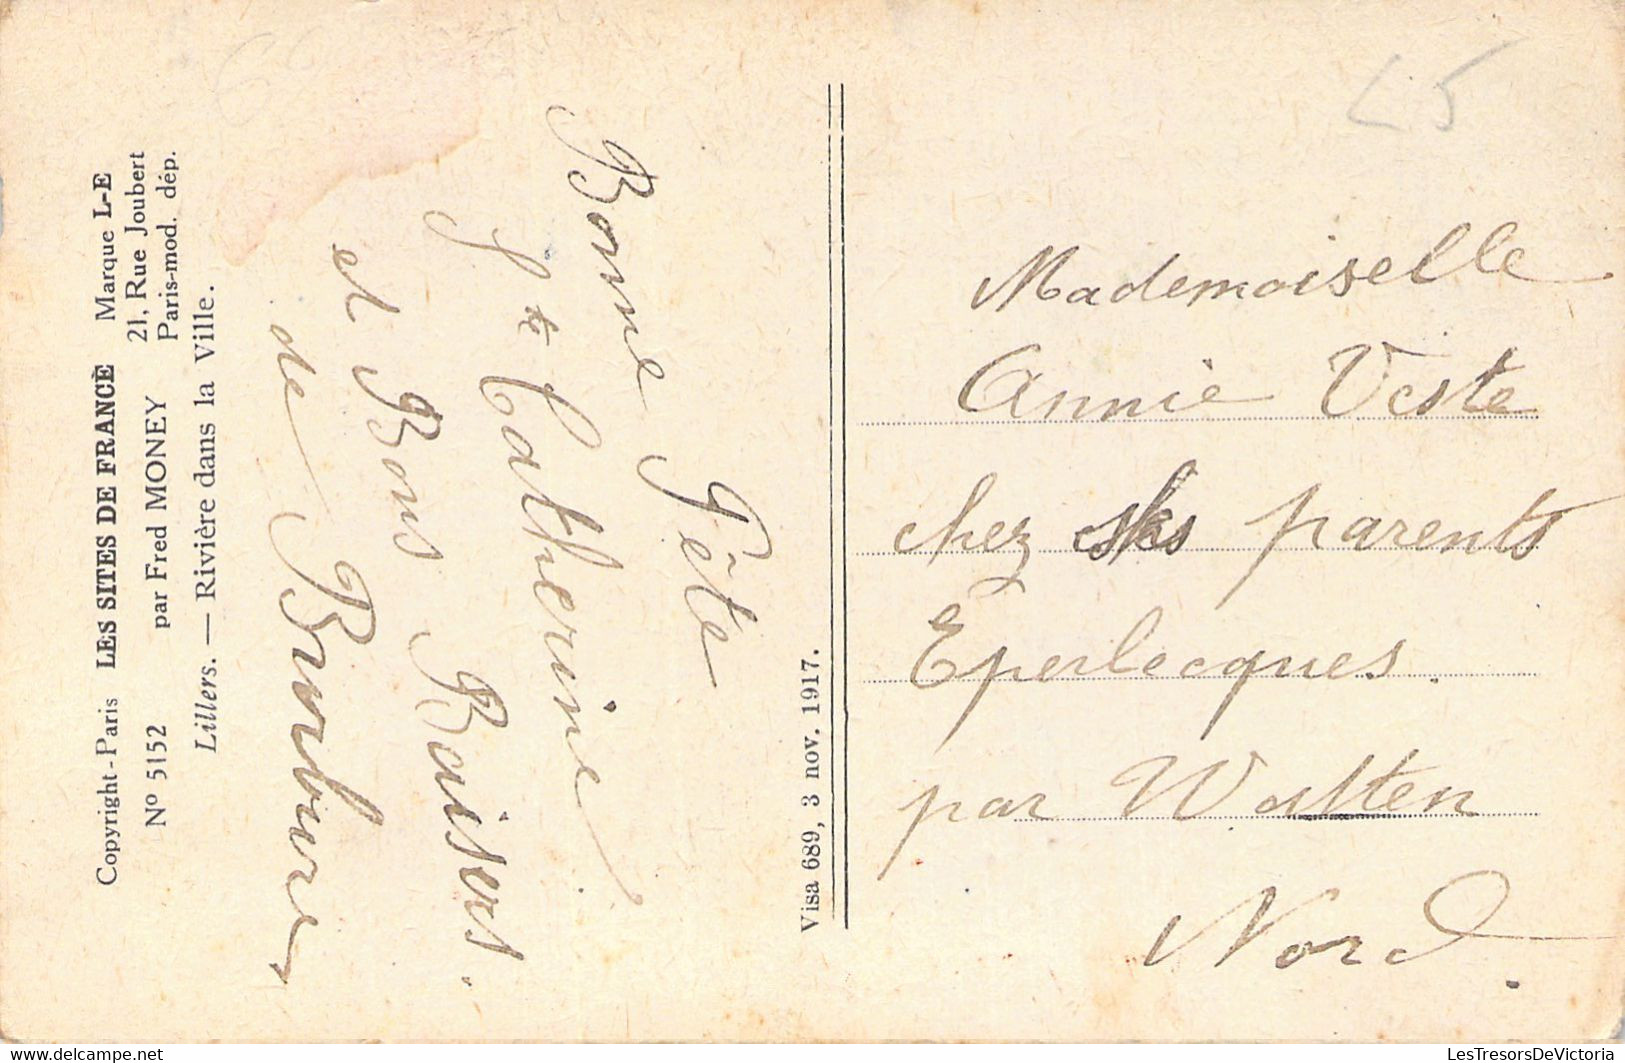 Copyright - Paris LES SITES DE FRANCE Marque L-E
Nº 5152 par Fred MONEY 21, Rue Joubert
Paris-mod. dép.
Lillers. — Rivière dans la Ville.
Bonne Fête
Ste Catherine
et Bons Baisers.
de Burbure
Visa 689, 3 nov. 1917.
L5
Mademoiselle
Annie Veste
chez ses parents
Eperlecques.
par Watten
Nord.
LesTresorsDeVictoria
delcampe.net